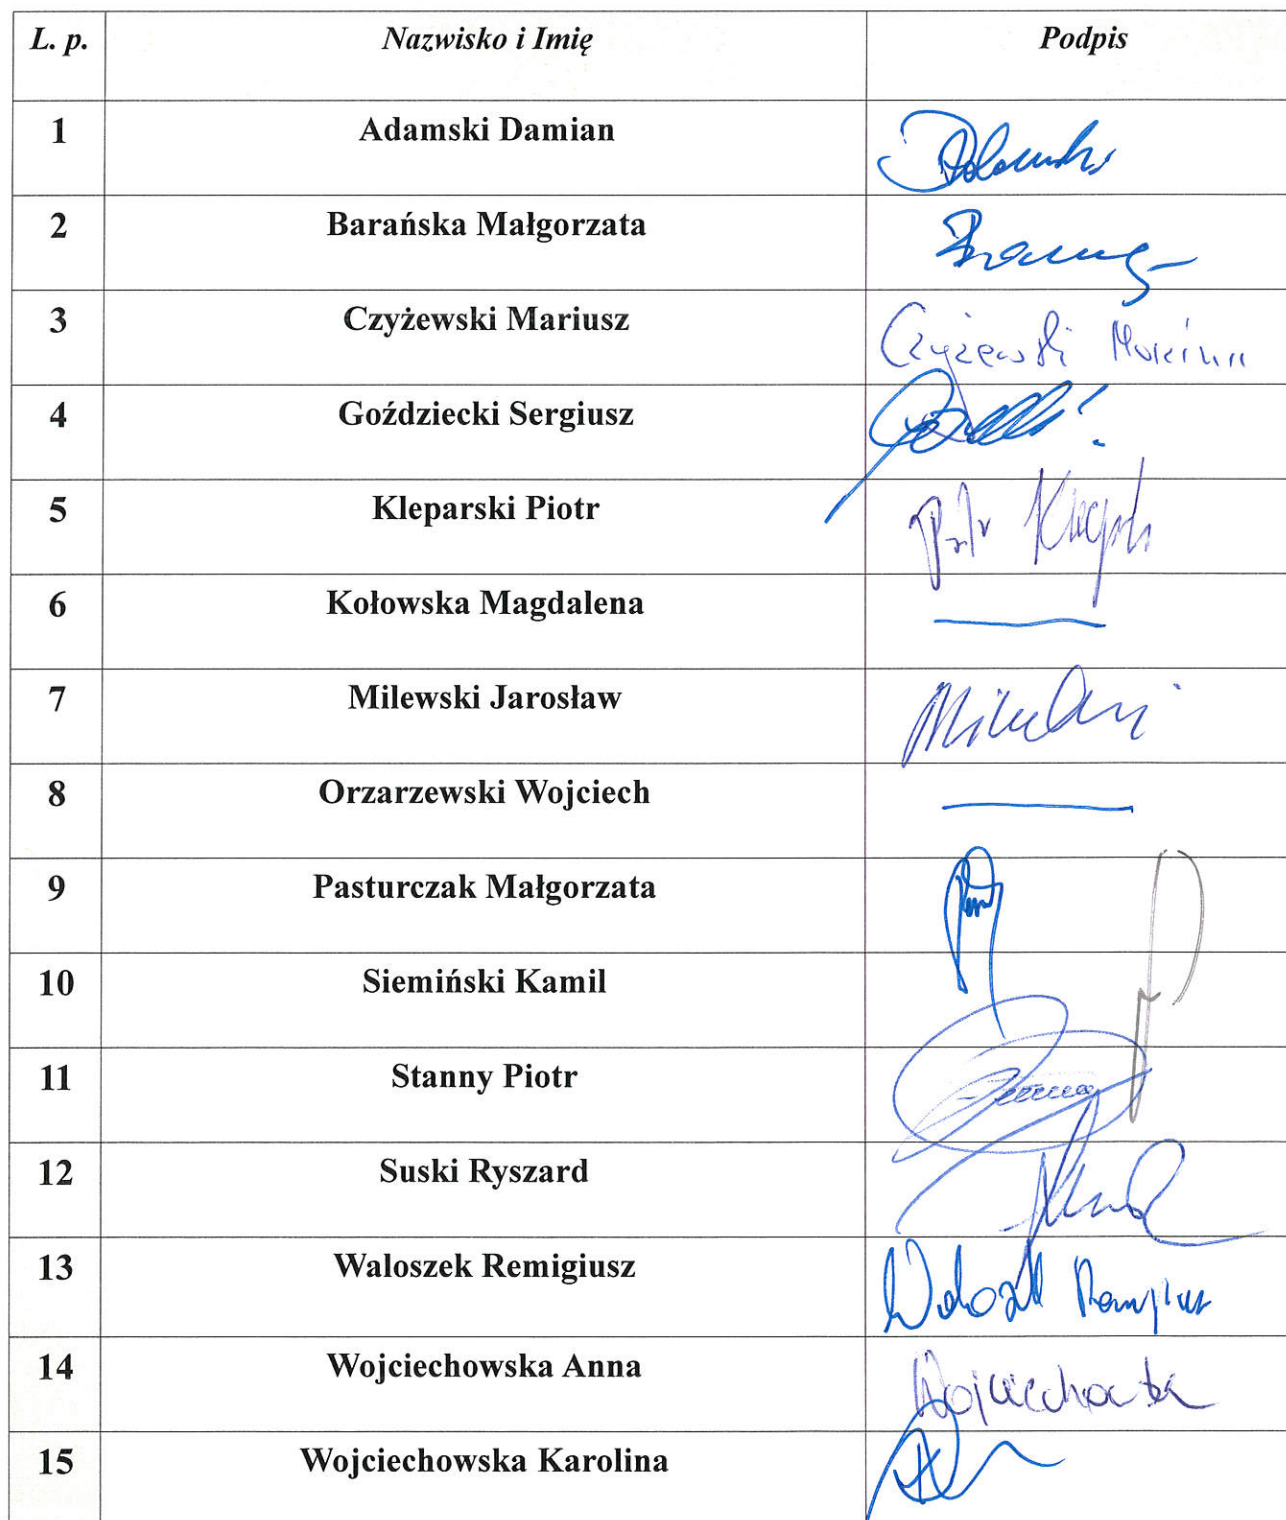 L. p. Nazwisko i Imię Podpis
1 Adamski Damian
2 Barańska Małgorzata
3 Czyżewski Mariusz Czyżewski Mariusz
4 Goździecki Sergiusz
5 Kleparski Piotr Piotr
6 Kołowska Magdalena
7 Milewski Jarosław
8 Orzarzewski Wojciech
9 Pasturczak Małgorzata
10 Siemiński Kamil
11 Stanny Piotr
12 Suski Ryszard
13 Waloszek Remigiusz
14 Wojciechowska Anna Wojciechowska
15 Wojciechowska Karolina